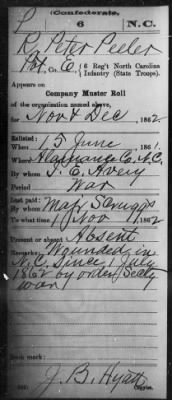 (Confederate.)
P 6 N.C.
R. Peter Peeler
Pvt., Co. E, 6 Reg't North Carolina
Infantry (State Troops).
Appears on
Company Muster Roll
of the organization named above,
for Nov & Dec, 1862.
Enlisted:
When 15 June, 1861.
Where Alamance Co. N.C.
By whom I. E. Avery
Period War
Last paid:
By whom Maj. Scruggs
To what time 1 Nov, 1862
Present or absent Absent
Remarks: Wounded, in
N.C. Since 1 July
1862 by order Secty
War
Book mark:
J. B. Hyatt
Copyist.